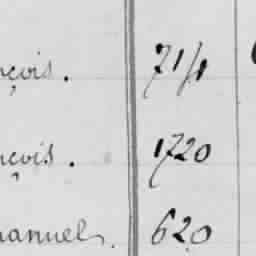 nçois. 71/1
nçois. 1720
anuel. 620